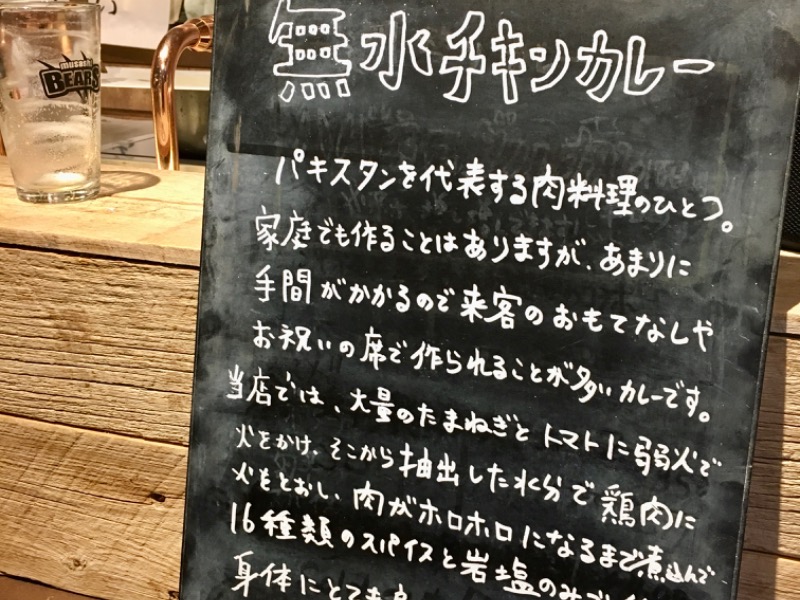 musashi
BEARS
無水チキンカレー
パキスタンを代表する肉料理のひとつ。
家庭でも作ることはありますが、あまりに
手間がかかるので来客のおもてなしや
お祝いの席で作られることが多いカレーです。
当店では、大量のたまねぎとトマトに弱火で
火をかけ、そこから抽出した水分で鶏肉に
火をとおし、肉がホロホロになるまで煮込んで
16種類のスパイスと岩塩のみで
身体にとても